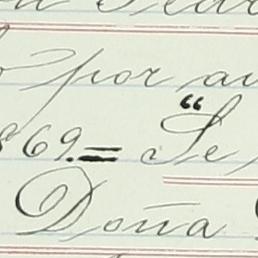 por au
869.= “Se
Doña